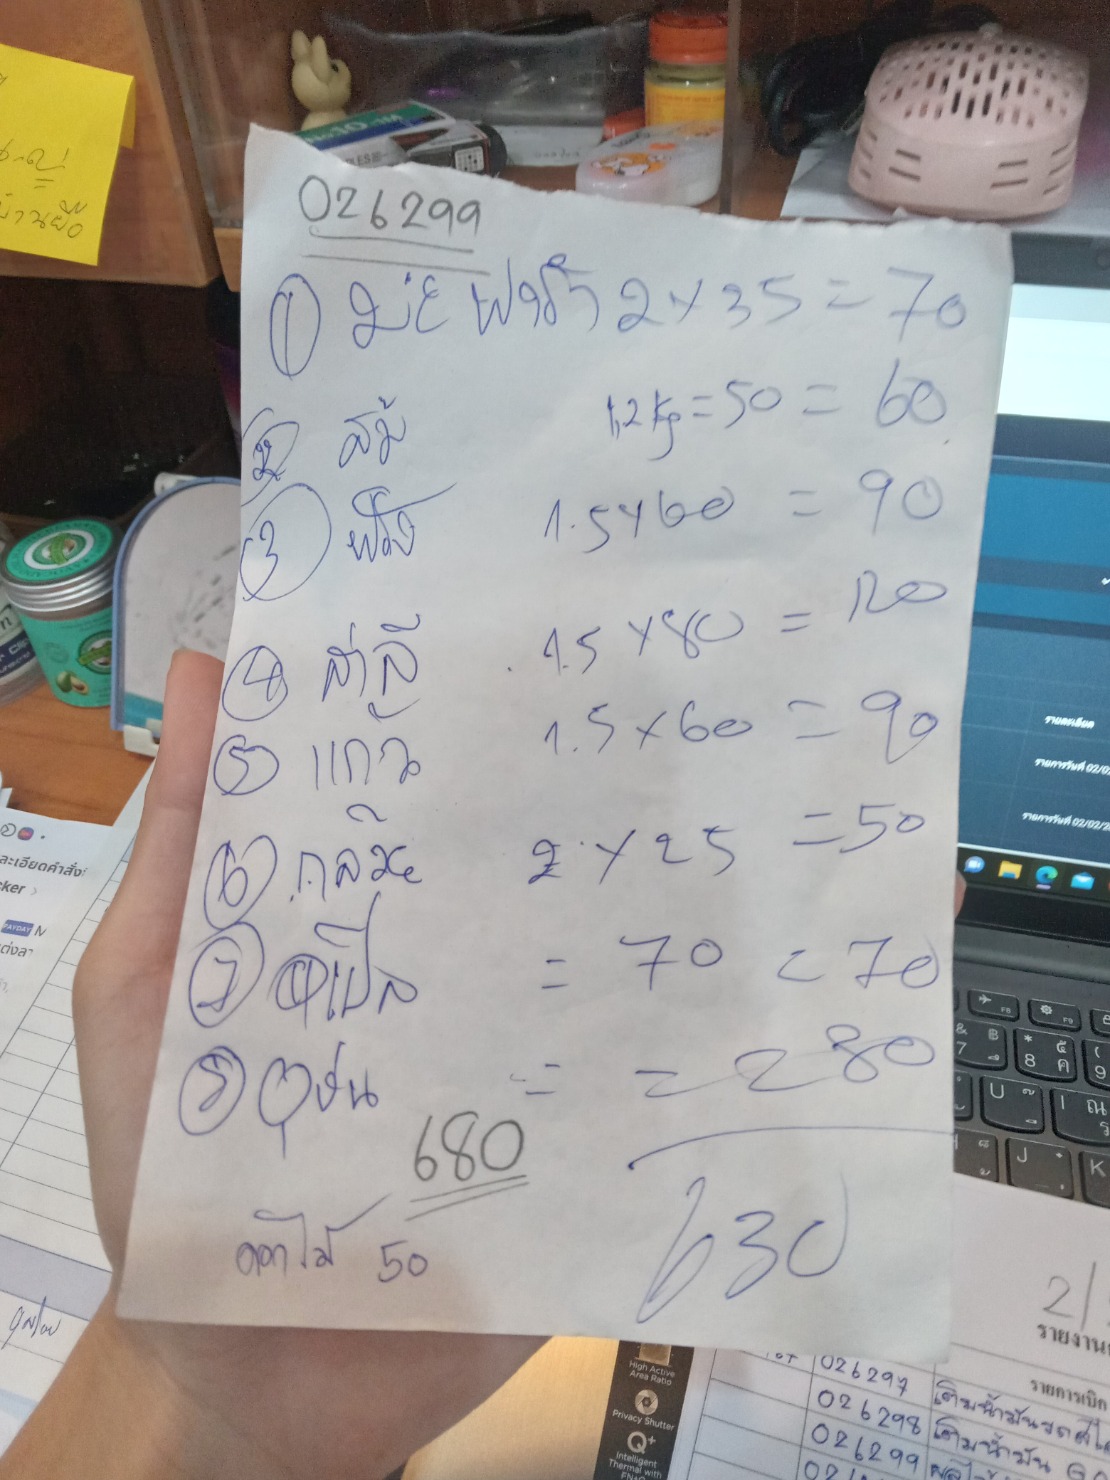 026299
① มะพร้าว 2x35 = 70
② ส้ม 1,2 kg = 50 = 60
③ ฝรั่ง 1.5x60 = 90
④ สาลี่ 1.5 x 80 = 120
⑤ แก้ว 1.5 x 60 = 90
⑥ กล้วย 2 x 25 = 50
⑦ แอปเปิ้ล = 70 = 70
⑧ องุ่น = = 80
680
630
ดอกไม้ 50
บ้านผือ
ละเอียดคำสั่งซื้
cker >
PAYDAY
รายละเอียด
รายการวันที่ 02/02
รายการวันที่ 02/02/2
High Active
Area Ratio
Privacy Shutter
Q+
Intelligent
Thermal with
2/
รายงาน
รายการเบิก
026297 เติมน้ำมันรถ
026298 เติมน้ำมัน
026299